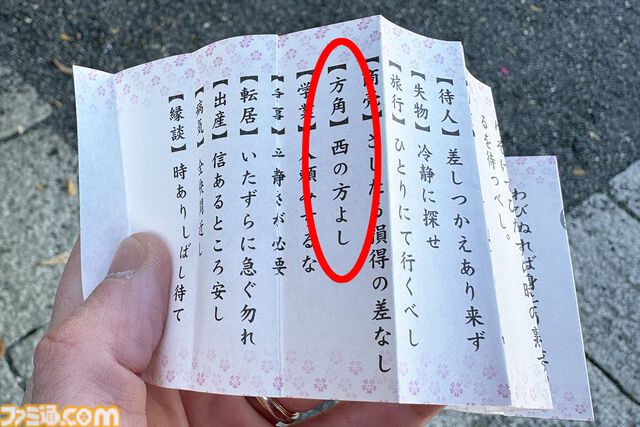 わびぬれば身を
るを待つべし。
【待人】差しつかえあり来ず
【失物】冷静に探せ
【旅行】ひとりにて行くべし
【商売】損得の差なし
【方角】西の方よし
【学業】人頼みするな
平静さが必要
【転居】いたずらに急ぐ勿れ
【出産】信あるところ安し
【病気】全快間近し
【縁談】時ありしばし待て
ファミ通.com